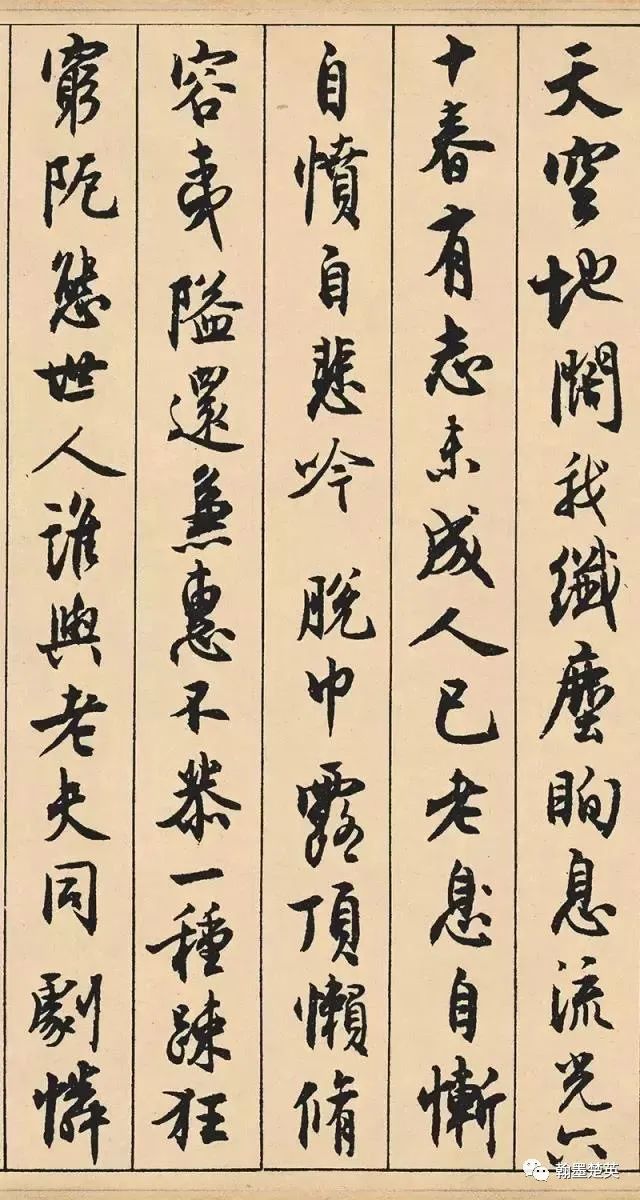 天空地闊我纖塵眴息流光六
十春有志未成人已老息自慚
自憤自悲吟 脫巾露頂懶脩
容夷隘還兼惠不恭一種踈狂
窮阨態世人誰與老夫同劇憐
翰墨楚英